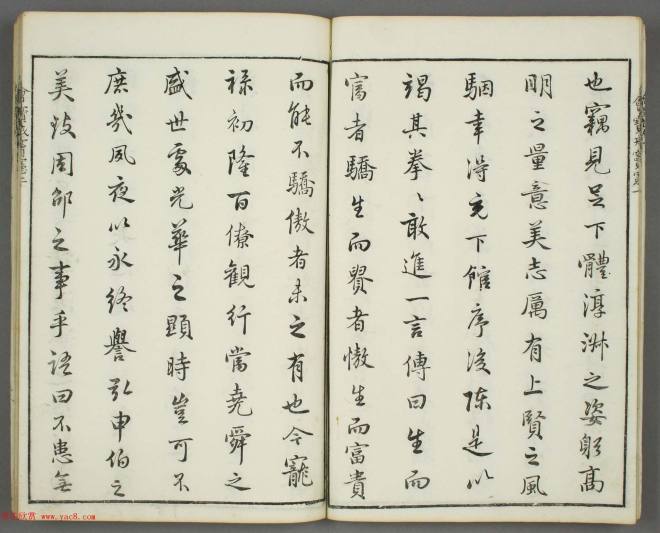 也竊見足下體淳淑之姿躬高
明之量意美志厲有上賢之風
駰幸得充下館序後陳是以
竭其拳々敢進一言傳曰生而
富者驕生而貴者憿生而富貴
而能不驕傲者未之有也今寵
祿初隆百僚觀行當堯舜之
盛世處光華之顯時豈可不
庶幾夙夜以永終譽弘申伯之
美致周邵之事乎語曰不患無
www.yac8.com